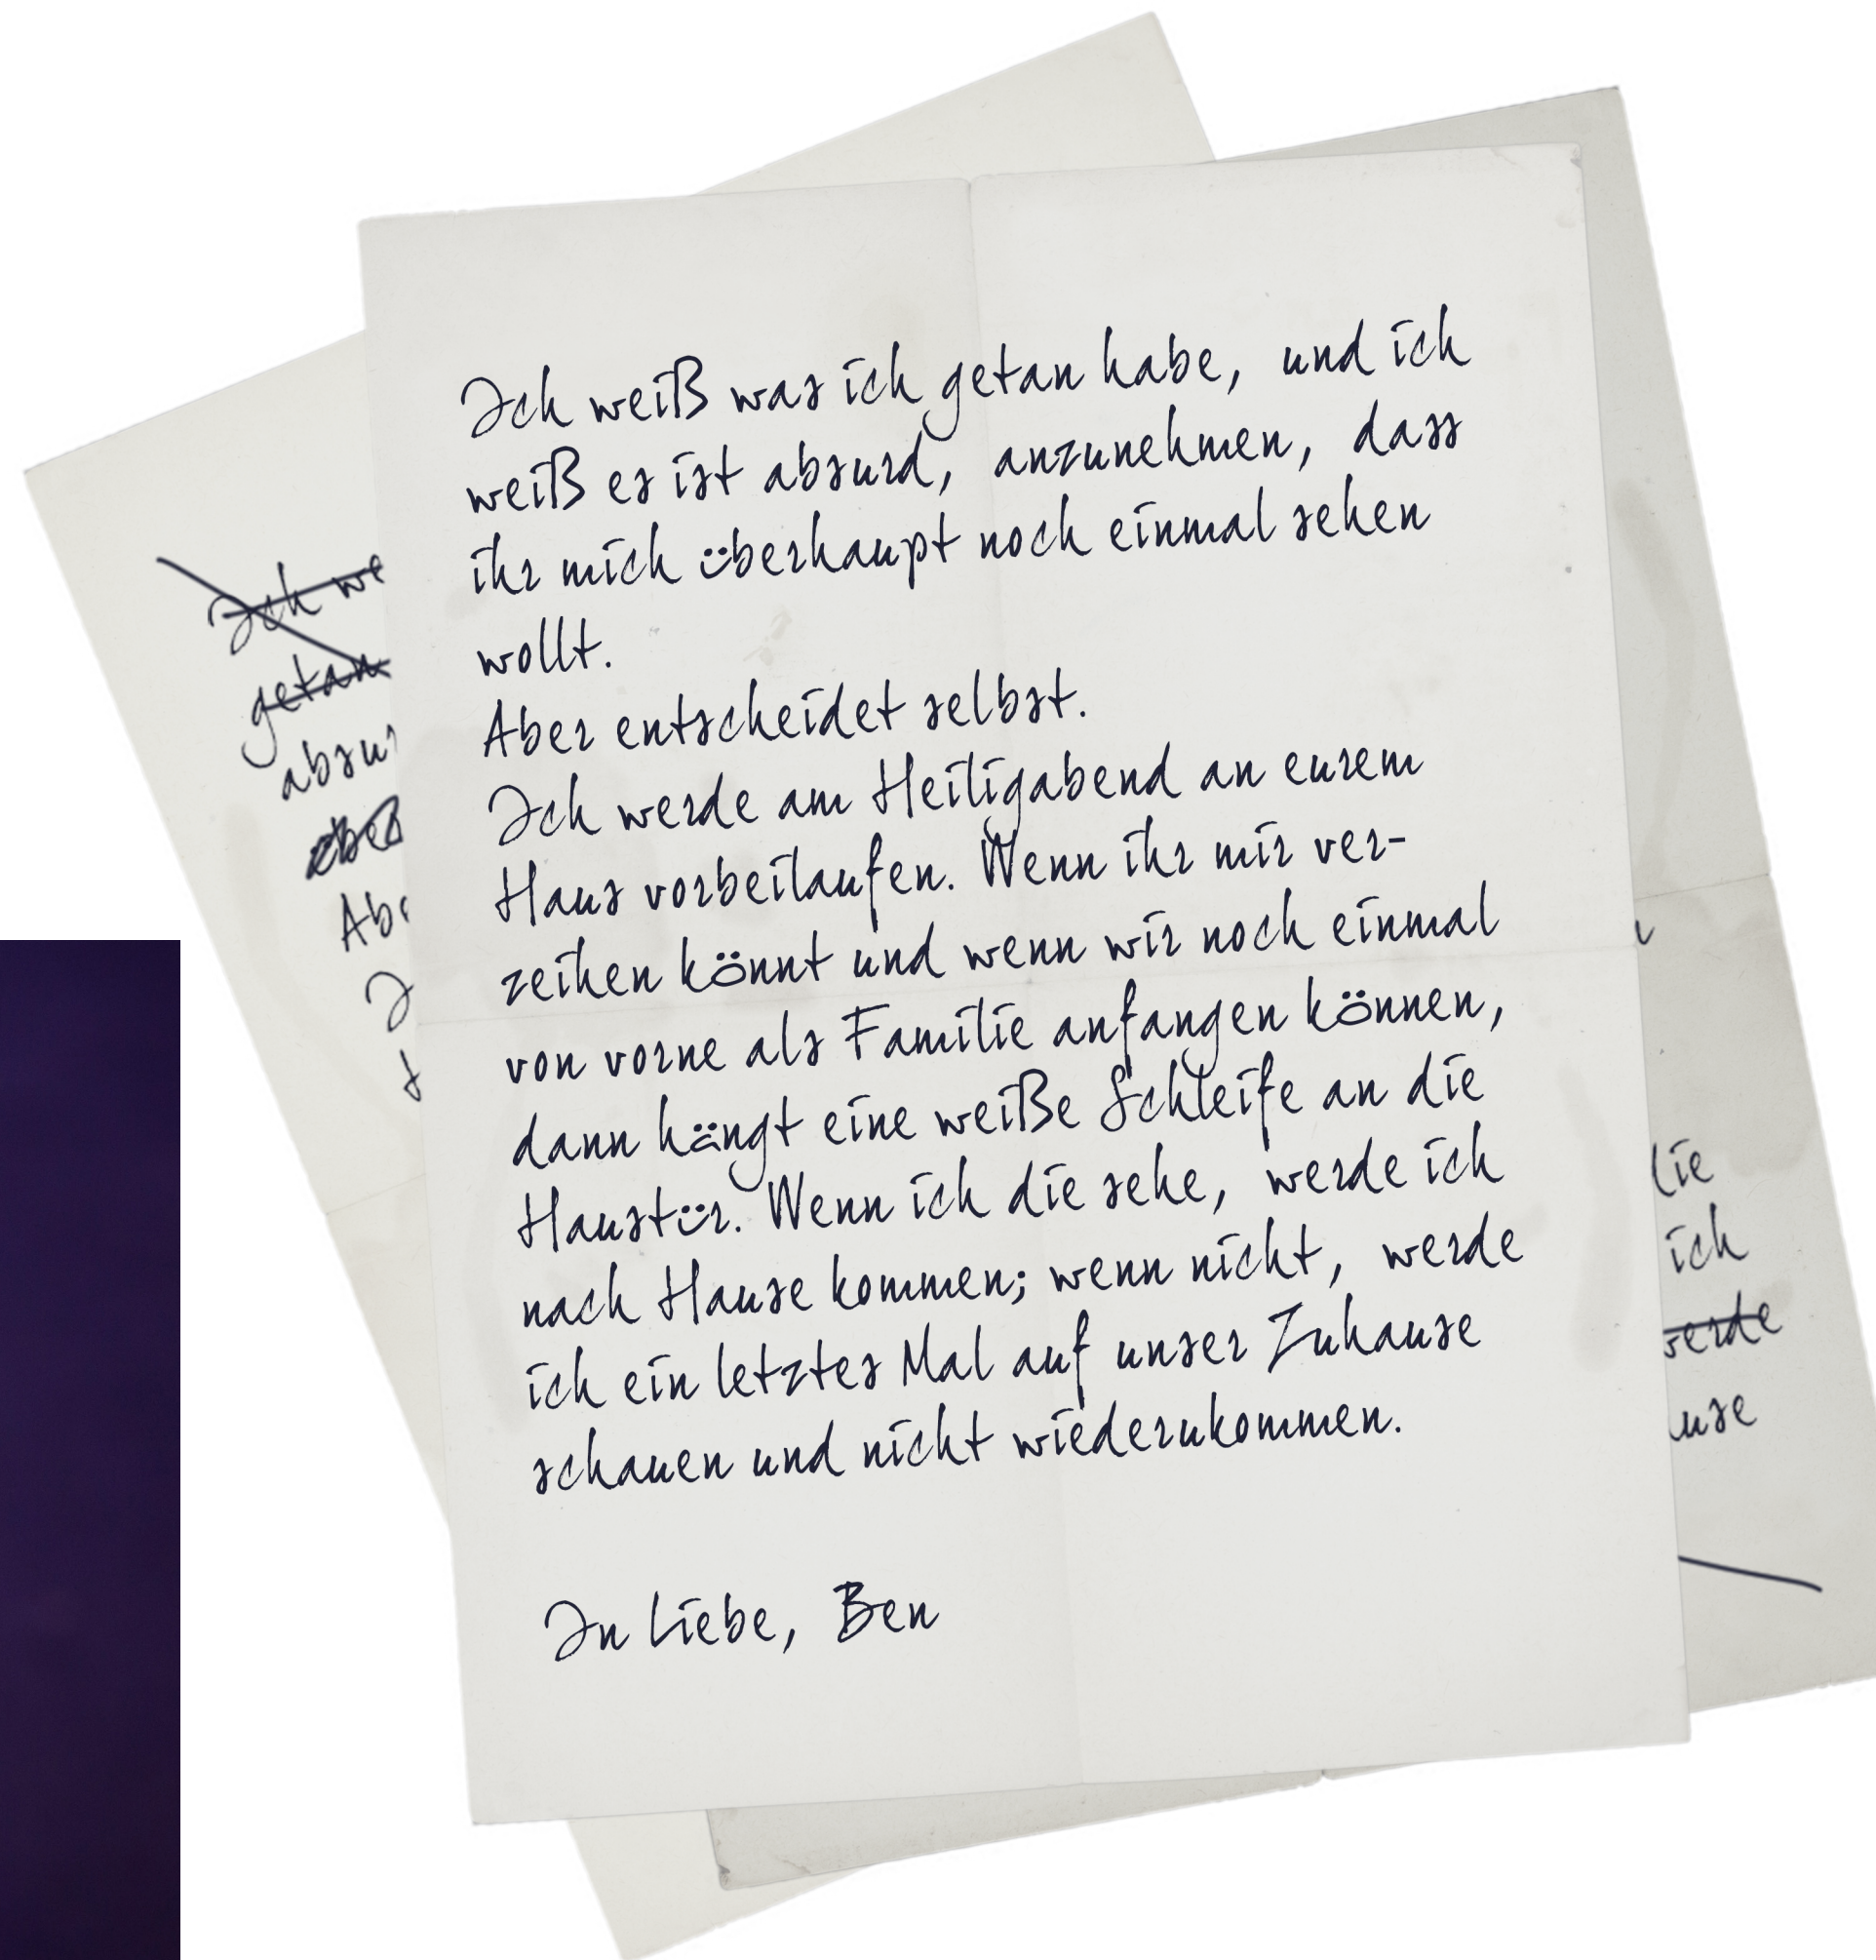 Ich weiß was ich getan habe, und ich
weiß es ist absurd, anzunehmen, dass
ihr mich überhaupt noch einmal sehen
wollt.
Aber entscheidet selbst.
Ich werde am Heiligabend an eurem
Haus vorbeilaufen. Wenn ihr mir ver-
zeihen könnt und wenn wir noch einmal
von vorne als Familie anfangen können,
dann hängt eine weiße Schleife an die
Haustür. Wenn ich die sehe, werde ich
nach Hause kommen; wenn nicht, werde
ich ein letztes Mal auf unser Zuhause
schauen und nicht wiederukommen.
In Liebe, Ben
Ich we
getan
ich
werde